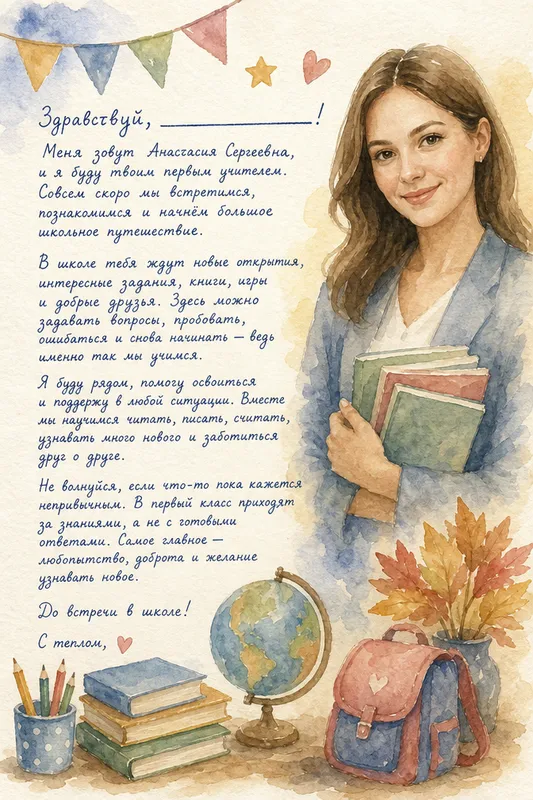 Здравствуй, ____________!
Меня зовут Анастасия Сергеевна,
и я буду твоим первым учителем.
Совсем скоро мы встретимся,
познакомимся и начнём большое
школьное путешествие.
В школе тебя ждут новые открытия,
интересные задания, книги, игры
и добрые друзья. Здесь можно
задавать вопросы, пробовать,
ошибаться и снова начинать — ведь
именно так мы учимся.
Я буду рядом, помогу освоиться
и поддержу в любой ситуации. Вместе
мы научимся читать, писать, считать,
узнавать много нового и заботиться
друг о друге.
Не волнуйся, если что-то пока кажется
непривычным. В первый класс приходят
за знаниями, а не с готовыми
ответами. Самое главное —
любопытство, доброта и желание
узнавать новое.
До встречи в школе!
С теплом,